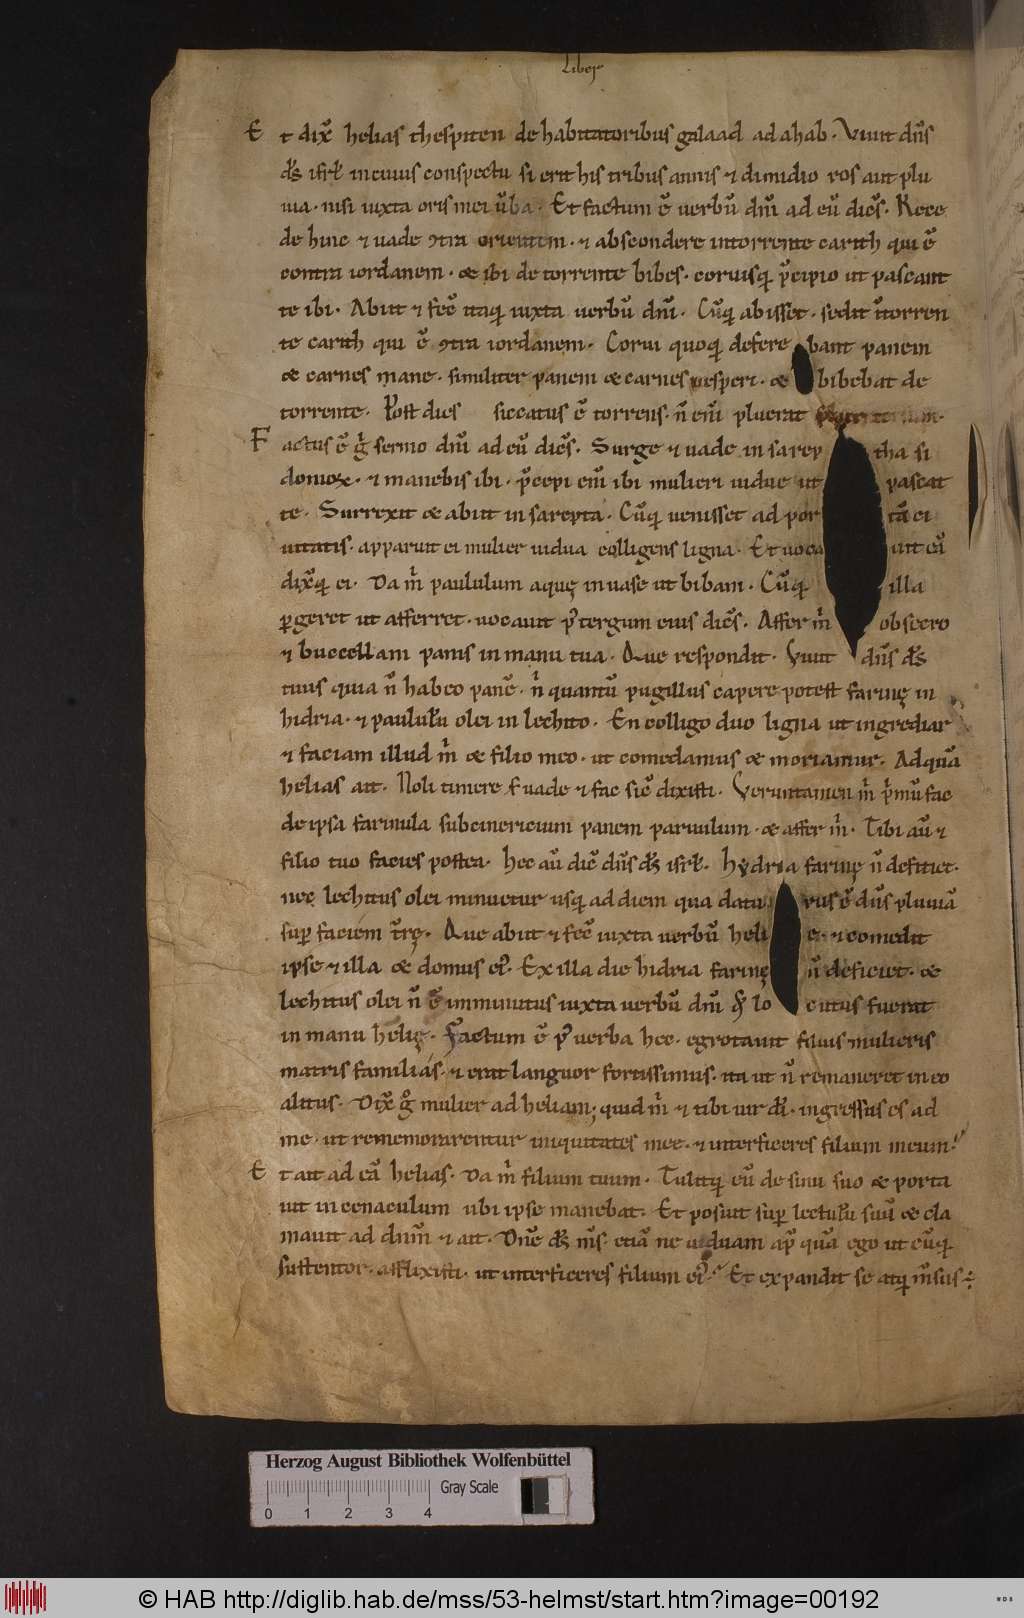 Liber
Et dix̄ helias thespiten de habitatoribus galaad ad ahab. Viuit dn̄s
ds̄ isrl̄ in cuius conspectu si erit his tribus annis & dimidio ros aut plu
uia. nisi iuxta oris mei ūba. Et factum ē uerbū dn̄i ad eū dicēs. Rece
de hinc & uade 9tra orientem. & abscondere in torrente carith qui ē
contra iordanem. & ibi de torrente bibes. coruisq; p̄cipio ut pascant
te ibi. Abiit & fec̄ itaq; iuxta uerbū dn̄i. Cūq; abisset. sedit ī torren
te carith qui ē 9tra iordanem. Corui quoq; defere bant panem
& carnes mane. similiter panem & carnes uesperi. & bibebat de
torrente. Post dies siccatus ē torrens. n̄ em̄ pluerat
Factus ē g̊ sermo dn̄i ad eū dicēs. Surge & uade in sarep tha si
donioꝝ. & manebis ibi. p̄cepi em̄ ibi mulieri uidue ut pascat
te. Surrexit & abiit in sarepta. Cūq; uenisset ad por tā ci
uitatis. apparuit ei mulier uidua colligens ligna. Et uoca uit eā
dix̄q; ei. Da m̄ paululum aquę in uase ut bibam. Cūq; illa
ꝑgeret ut afferret. uocauit p̄ tergum eius dicēs. Affer m̄ obsecro
& buccellam panis in manu tua. Que respondit. Viuit dn̄s ds̄
tuus quia n̄ habeo panē. n̄ quantū pugillus capere potest farinę in
hidria. & paulul̄u olei in lechito. En colligo duo ligna ut ingrediar
& faciam illud m̄ & filio meo. ut comedamus & moriamur. Ad quā
helias ait. Noli timere s; uade & fac sic̄ dixisti. Veruntamen m̄ p̄mū fac
de ipsa farinula subcinericium panem paruulum. & affer m̄. Tibi aū &
filio tuo facies postea. Hec aū dic̄ dn̄s ds̄ isrl̄. Hydria farinę n̄ deficiet.
nec lechitus olei minuetur usq; ad diem qua datu rus ē dn̄s pluuiā
sup̄ faciem tr̄ę. Que abiit & fec̄ iuxta uerbū heli ę. & comedit
ipse & illa & domus ei9. Ex illa die hidria farinę n̄ deficiet. &
lechitus olei n̄ ē imminutus iuxta uerbū dn̄i qd̄ lo cutus fuerat
in manu helię. Factum ē p9 uerba hec. egrotauit filius mulieris
matris familias. & erat languor fortissimus. ita ut n̄ remaneret in eo
alitus. Dix̄ g̊ mulier ad heliam; quid m̄ & tibi uir di̅. ingressus es ad
me. ut rememorarentur iniquitates mee. & interficeres filium meum.
Et ait ad eā helias. Da m̄ filium tuum. Tulitq; eū de sinu suo & porta
uit in cenaculum ubi ipse manebat. Et posuit sup̄ lectul̄u suū & cla
mauit ad dnm̄ & ait. Dn̄e ds̄ m̄s. etiā ne uiduam ap̄ quā ego ut cūq;
sustentor. afflixisti. ut interficeres filium ei9. Et expandit se atq; m̄sus
Herzog August Bibliothek Wolfenbüttel
Gray Scale
0 1 2 3 4
© HAB http://diglib.hab.de/mss/53-helmst/start.htm?image=00192